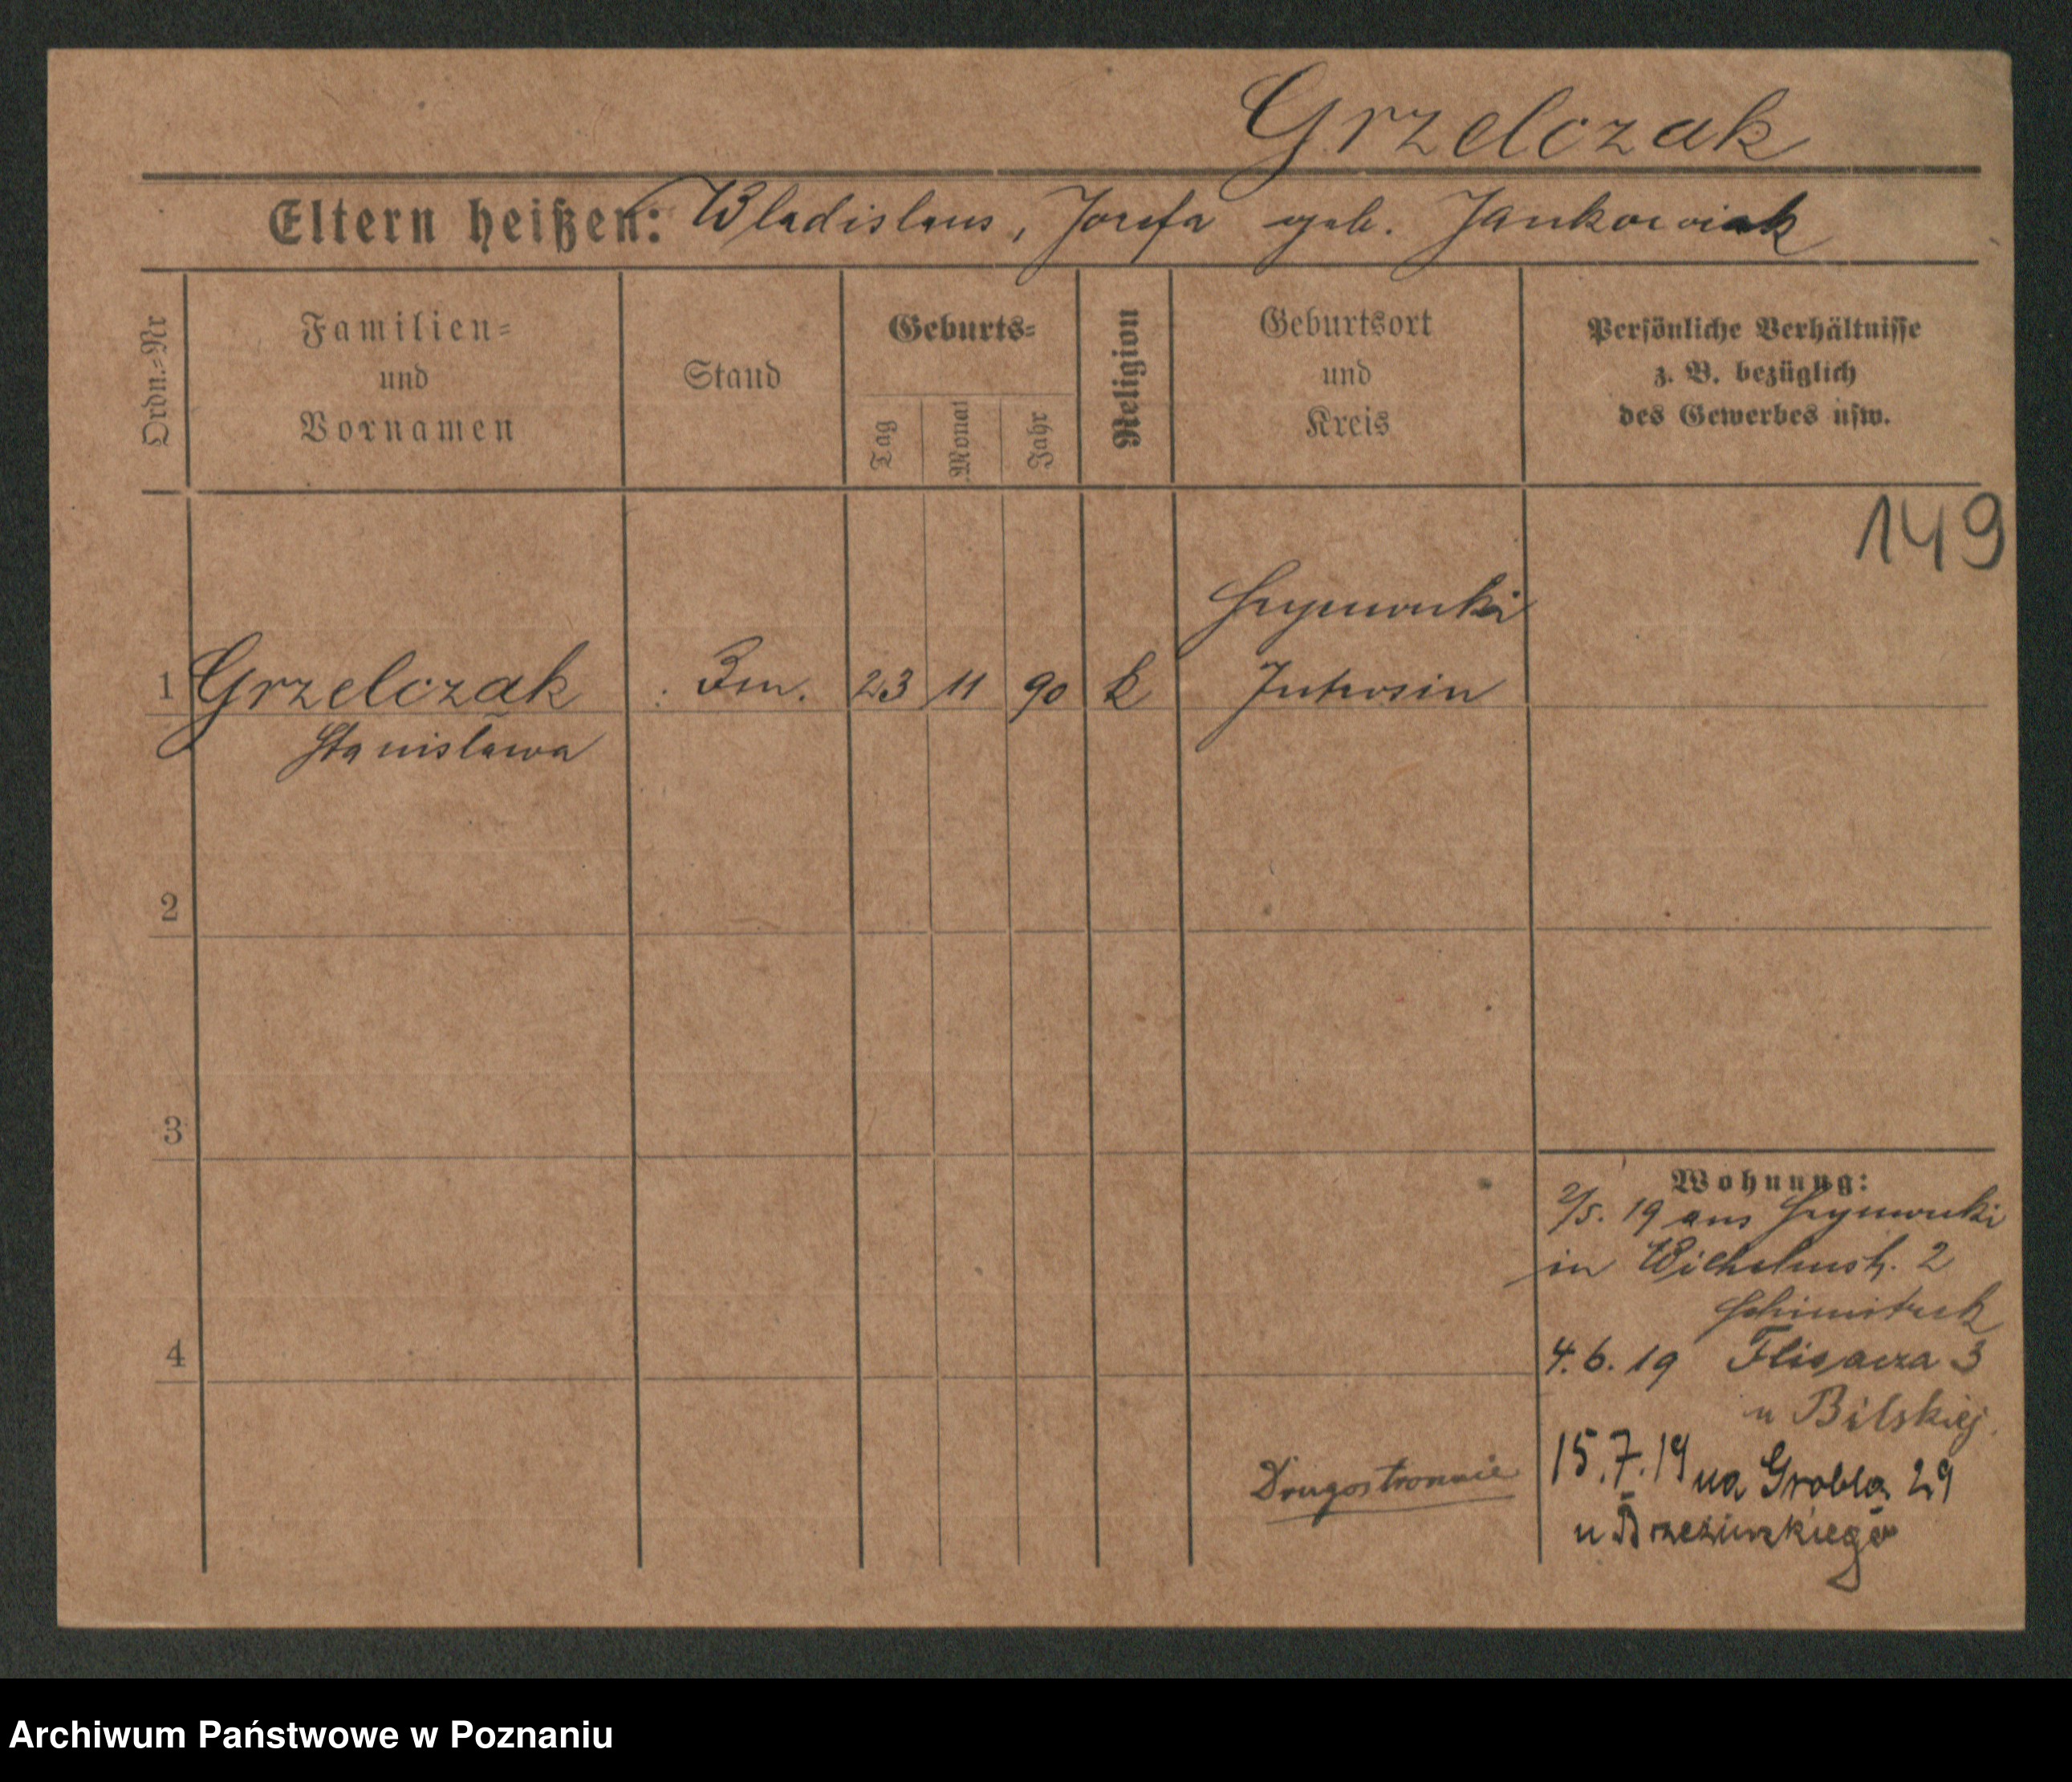 Grzelczak
Eltern heißen: Wladislaus, Josefa geb. Jankowiak
Ordn.=Nr
Familien=
und
Vornamen
Stand
Geburts=
Tag
Monat
Jahr
Religion
Geburtsort
und
Kreis
Persönliche Verhältnisse
z. B. bezüglich
des Gewerbes usw.
149
1 Grzelczak 23 11 90 k Jutrosin
Stanisława
2
3
4
Wohnung:
2/5. 19 aus
in Wilhelmstr. 2
4. 6. 19 Flisacza 3
u Bilskiej.
Drugostronnie
15.7.19 na Grobla 29
u Brzezinskiego
Archiwum Państwowe w Poznaniu